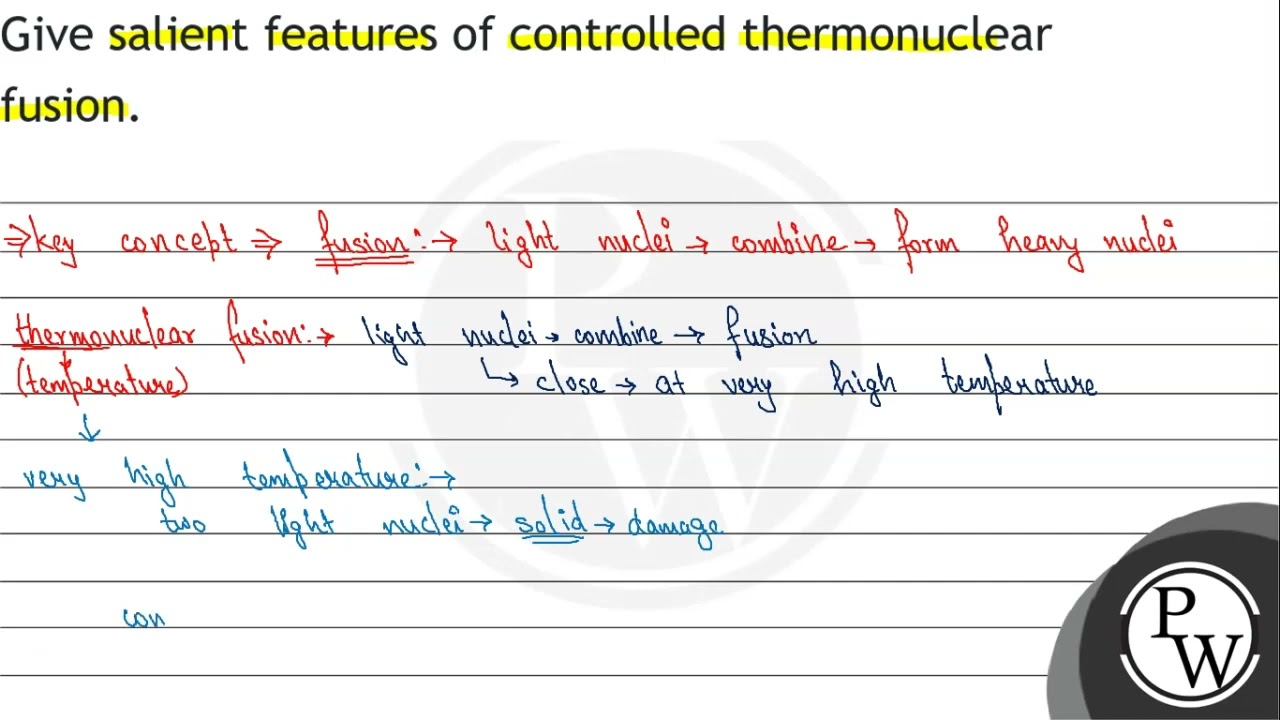 Give salient features of controlled thermonuclear
fusion.
⇒ key concept ⇒ fusion :→ light nuclei → combine → form heavy nuclei
thermonuclear fusion :→ light nuclei → combine → fusion
(temperature) ↳ close → at very high temperature
↓
very high temperature :→
two light nuclei → solid → damage
con
P
W